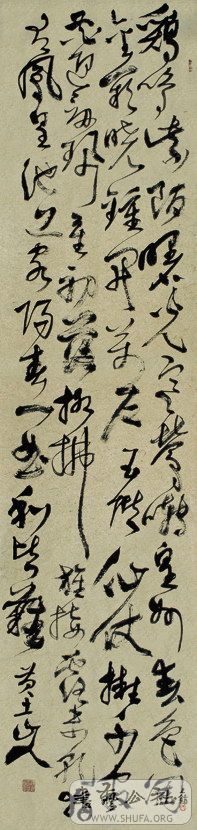 鷄鳴紫陌曙光寒鶯囀皇州春色闌
金闕曉鐘開萬戶玉階仙仗擁千官
花迎劍珮星初落柳拂旌旗露未乾獨
有鳳皇池上客陽春一曲和皆難
WWW.SHUFA.ORG